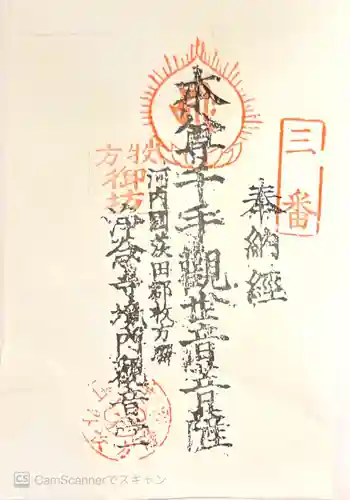 三番
奉納経
本尊十一千手觀世音菩薩
河内國茨田郡枚方驛
浄念寺境内觀音堂
枚方
御坊
CamScannerでスキャン